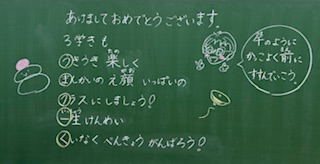 あけましておめでとうございます。
3学きも
うきうき楽しく
まんかいのえ顔いっぱいの
クラスにしましょう!
一生けんめい
くいなくべんきょうがんばろう!
年のように
かっこよく前に
すすんでいこう。